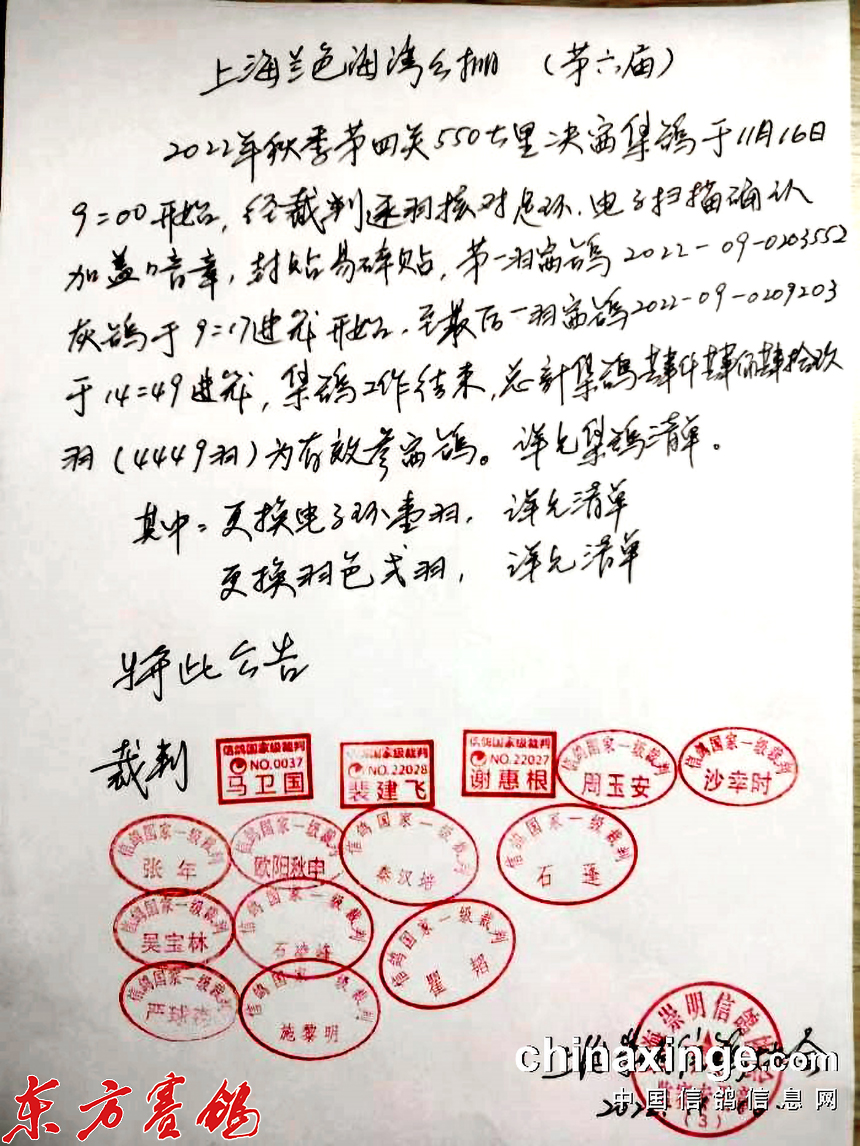 上海兰色海湾公棚 (第六届)
2022年秋季第四关550公里决赛集鸽于11月16日
9:00开始, 经裁判逐羽核对足环、电子扫描确认
加盖暗章, 封贴易碎贴, 第一羽赛鸽 2022-09-0203552
灰鸽于 9:17进笼开始, 至最后一羽赛鸽2022-09-0209203
于14:49进笼, 集鸽工作结束, 总计集鸽肆仟肆佰肆拾玖
羽(4449羽)为有效参赛鸽。详见集鸽清单。
其中: 更换电子环壹羽, 详见清单
更换羽色弍羽, 详见清单
特此公告
裁判
信鸽国家级裁判 NO.0037 马卫国
信鸽国家级裁判 NO.22028 裴建飞
信鸽国家级裁判 NO.22027 谢惠根
信鸽国家一级裁判 周玉安
信鸽国家一级裁判 沙幸时
信鸽国家一级裁判 张年
信鸽国家一级裁判 欧阳秋申
信鸽国家一级裁判 秦汉培
信鸽国家一级裁判 石蓬
信鸽国家一级裁判 吴宝林
信鸽国家一级裁判 石
信鸽国家一级裁判 瞿
信鸽国家一级裁判 严球
信鸽国家一级裁判 施黎明
崇明信鸽协会
(3)
上海
2022.
chinaxinge.com
中国信鸽信息网
东方赛鸽